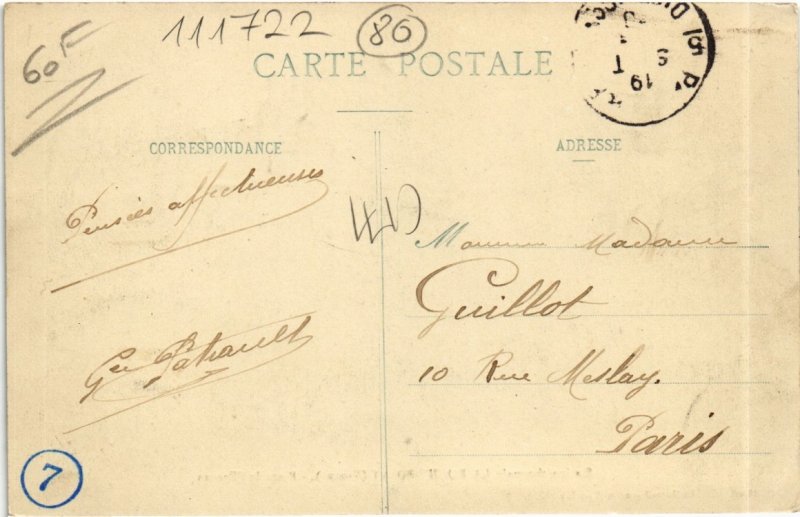 111722
86
60F
CARTE POSTALE
CORRESPONDANCE
ADRESSE
Pensées affectueuses
Monsieur Madame
Guillot
10 Rue Meslay.
Paris
7